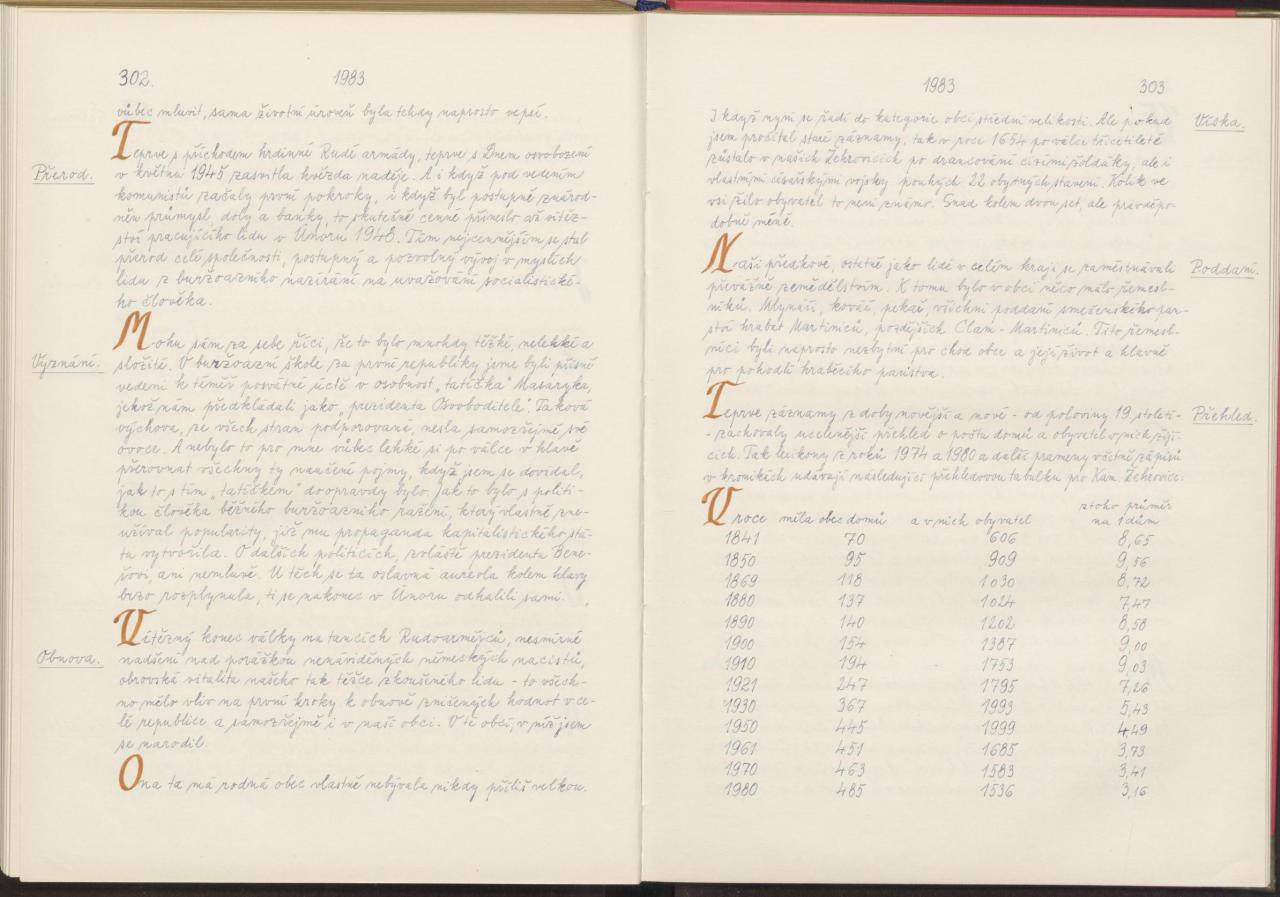 302.
1983
vůbec mluvit, sama životní úroveň byla tehdy naprosto vepsí.
Přerod.
Teprve s příchodem hrdinné Rudé armády, teprve s Dnem osvobození
v květnu 1945 zasvitla hvězda naděje. A i když pod vedením
komunistů začaly první pokroky, i když byl postupně znárod-
něn průmysl, doly a banky, to skutečně cenné přineslo až vítěz-
ství pracujícího lidu v Únoru 1948. Tím nejcennějším se stal
přerod celé společnosti, postupný a pozvolný vývoj v myslích
lidu z buržoazního nazírání na uvažování socialistické-
ho člověka.
Vyznání.
Mohu sám za sebe říci, že to bylo mnohdy těžké, nelehké a
složité. V buržoazní škole za první republiky jsme byli přísně
vedeni k téměř posvátné úctě v osobnost „tatíčka" Masaryka,
jehož nám předkládali jako „prezidenta Osvoboditele". Taková
výchova, ze všech stran podporovaná, nesla samozřejmě své
ovoce. A nebylo to pro mne vůbec lehké si po válce v hlavě
přerovnat všechny ty naučené pojmy, když jsem se dovídal,
jak to s tím „tatíčkem" doopravdy bylo. Jak to bylo s politi-
kou člověka běžného buržoazního ražení, který vlastně zne-
užíval popularity, již mu propaganda kapitalistického stá-
tu vytvořila. O dalších politicích, zvláště prezidentu Bene-
šovi, ani nemluvě. U těch se ta oslavná aureola kolem hlavy
brzo rozplynula, ti se nakonec v Únoru odhalili sami.
Obnova.
Vítězný konec války na tancích Rudoarmějců, nesmírné
nadšení nad porážkou nenáviděných německých nacistů,
obrovská vitalita našeho tak těžce zkoušeného lidu – to všech-
no mělo vliv na první kroky k obnově zničených hodnot v ce-
lé republice a samozřejmě i v naší obci. V té obci, v níž jsem
se narodil.
Ona ta má rodná obec vlastně nebývala nikdy příliš velkou.
1983
303
I když nyní se řadí do kategorie obcí střední velikosti. Ale pokud
Víska.
jsem pročítal staré záznamy, tak v roce 1654 po válce třicetileté
zůstalo v našich Žehrovicích po drancování cizími žoldáky, ale i
vlastními císařskými vojsky pouhých 22 obytných stavení. Kolik ve
vsi žilo obyvatel to není známo. Snad kolem dvou set, ale pravděpo-
dobně méně.
Naši předkové, ostatně jako lidé v celém kraji se zaměstnávali
Poddaní.
převážně zemědělstvím. K tomu bylo v obci něco málo řemesl-
níků. Mlynáři, kováč, pekař, všichni poddaní smečenského pan-
ství hrabat Martiniců, pozdějších Clam-Martiniců. Tito řemesl-
níci byli naprosto nezbytní pro chod obce a její život a hlavně
pro pohodlí hraběcího panstva.
Teprve záznamy z doby novější a nové – od poloviny 19. století –
Přehled.
– zachovaly ucelenější přehled o počtu domů a obyvatel v nich žijí-
cích. Tak lexikony z roků 1974 a 1980 a další prameny včetně zápisů
v kronikách udávají následující přehledovou tabulku pro Kam. Žehrovice:
V roce měla obec domů a v nich obyvatel z toho průměr na 1 dům
1841 70 606 8,65
1850 95 909 9,56
1869 118 1030 8,72
1880 137 1024 7,47
1890 140 1202 8,58
1900 154 1387 9,00
1910 194 1753 9,03
1921 247 1795 7,26
1930 367 1993 5,43
1950 445 1999 4,49
1961 451 1685 3,73
1970 463 1583 3,41
1980 485 1536 3,16